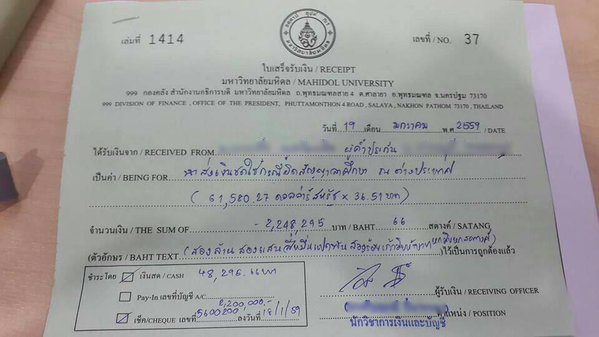 เล่มที่ 1414
เลขที่ / NO. 37
ใบเสร็จรับเงิน / RECEIPT
มหาวิทยาลัยมหิดล / MAHIDOL UNIVERSITY
999 กองคลัง สำนักงานอธิการบดี มหาวิทยาลัยมหิดล ถ.พุทธมณฑลสาย 4 ต.ศาลายา อ.พุทธมณฑล จ.นครปฐม 73170
999 DIVISION OF FINANCE, OFFICE OF THE PRESIDENT, PHUTTAMONTHON 4 ROAD, SALAYA, NAKHON PATHOM 73170, THAILAND
วันที่ 19 เดือน มกราคม พ.ศ 2559 / DATE
ได้รับเงินจาก / RECEIVED FROM ผู้ค้ำประกัน
เป็นค่า / BEING FOR ส่งเงินชดใช้กรณีผิดสัญญาลาศึกษา ณ ต่างประเทศ
(61,580.27 ดอลล่าร์สหรัฐ x 36.51 บาท)
จำนวนเงิน / THE SUM OF -2,248,295 บาท / BAHT 66 สตางค์ / SATANG
(ตัวอักษร / BAHT TEXT) (สองล้านสองแสนสี่หมื่นแปดพันสองร้อยเก้าสิบห้าบาทหกสิบหกสตางค์) ไว้เป็นการถูกต้องแล้ว
ชำระโดย ☑ เงินสด / CASH 48,295.66 บาท
☐ Pay-In เลขที่บัญชี A/C 2,200,000.-
ผู้รับเงิน / RECEIVING OFFICER
☑ เช็ค/CHEQUE เลขที่ 5600200 ลงวันที่ 18/1/59
ตำแหน่ง / POSITION
นักวิชาการเงินและบัญชี